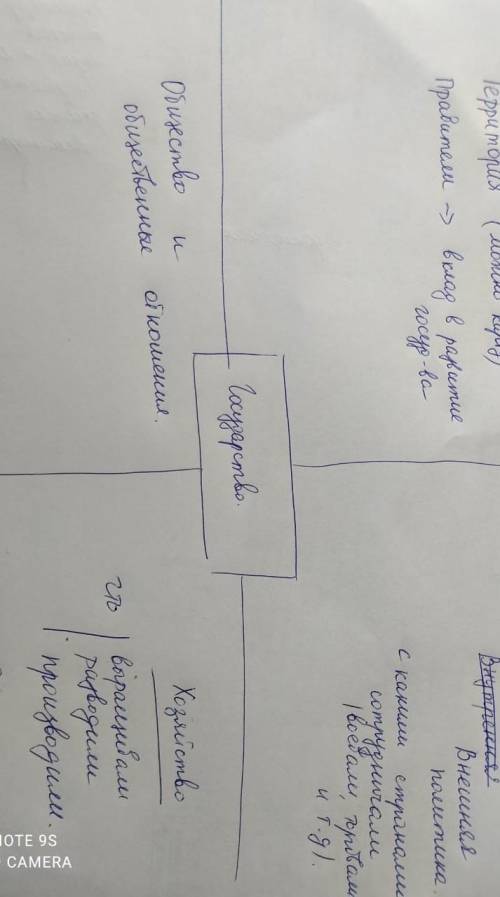 Территория (можно карту)
Правители → вклад в развитие
госуд-ва
Внутренняя
Внешняя
политика.
с какими странами
сотрудничали
(воевали, торговали
и т.д).
Государство.
Общество и
общественные отношения.
Хозяйство
что
выращивали
разводили
производили.
NOTE 9S
CAMERA